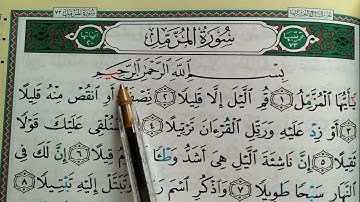 سُورَةُ الْمُزَّمِّلِ
بِسْمِ اللَّهِ الرَّحْمَٰنِ الرَّحِيمِ
يَٰٓأَيُّهَا الْمُزَّمِّلُ ١ قُمِ الَّيْلَ إِلَّا قَلِيلًا ٢ نِّصْفَهُۥٓ أَوِ انقُصْ مِنْهُ قَلِيلًا
٣ أَوْ زِدْ عَلَيْهِ وَرَتِّلِ الْقُرْءَانَ تَرْتِيلًا ٤ سَنُلْقِى عَلَيْكَ قَوْلًا
ثَقِيلًا ٥ إِنَّ نَاشِئَةَ الَّيْلِ هِىَ أَشَدُّ وَطْـًٔا قِيلًا ٦ إِنَّ لَكَ فِى
النَّهَارِ سَبْحًا طَوِيلًا ٧ وَاذْكُرِ اسْمَ وَتَبَتَّلْ إِلَيْهِ تَبْتِيلًا ٨